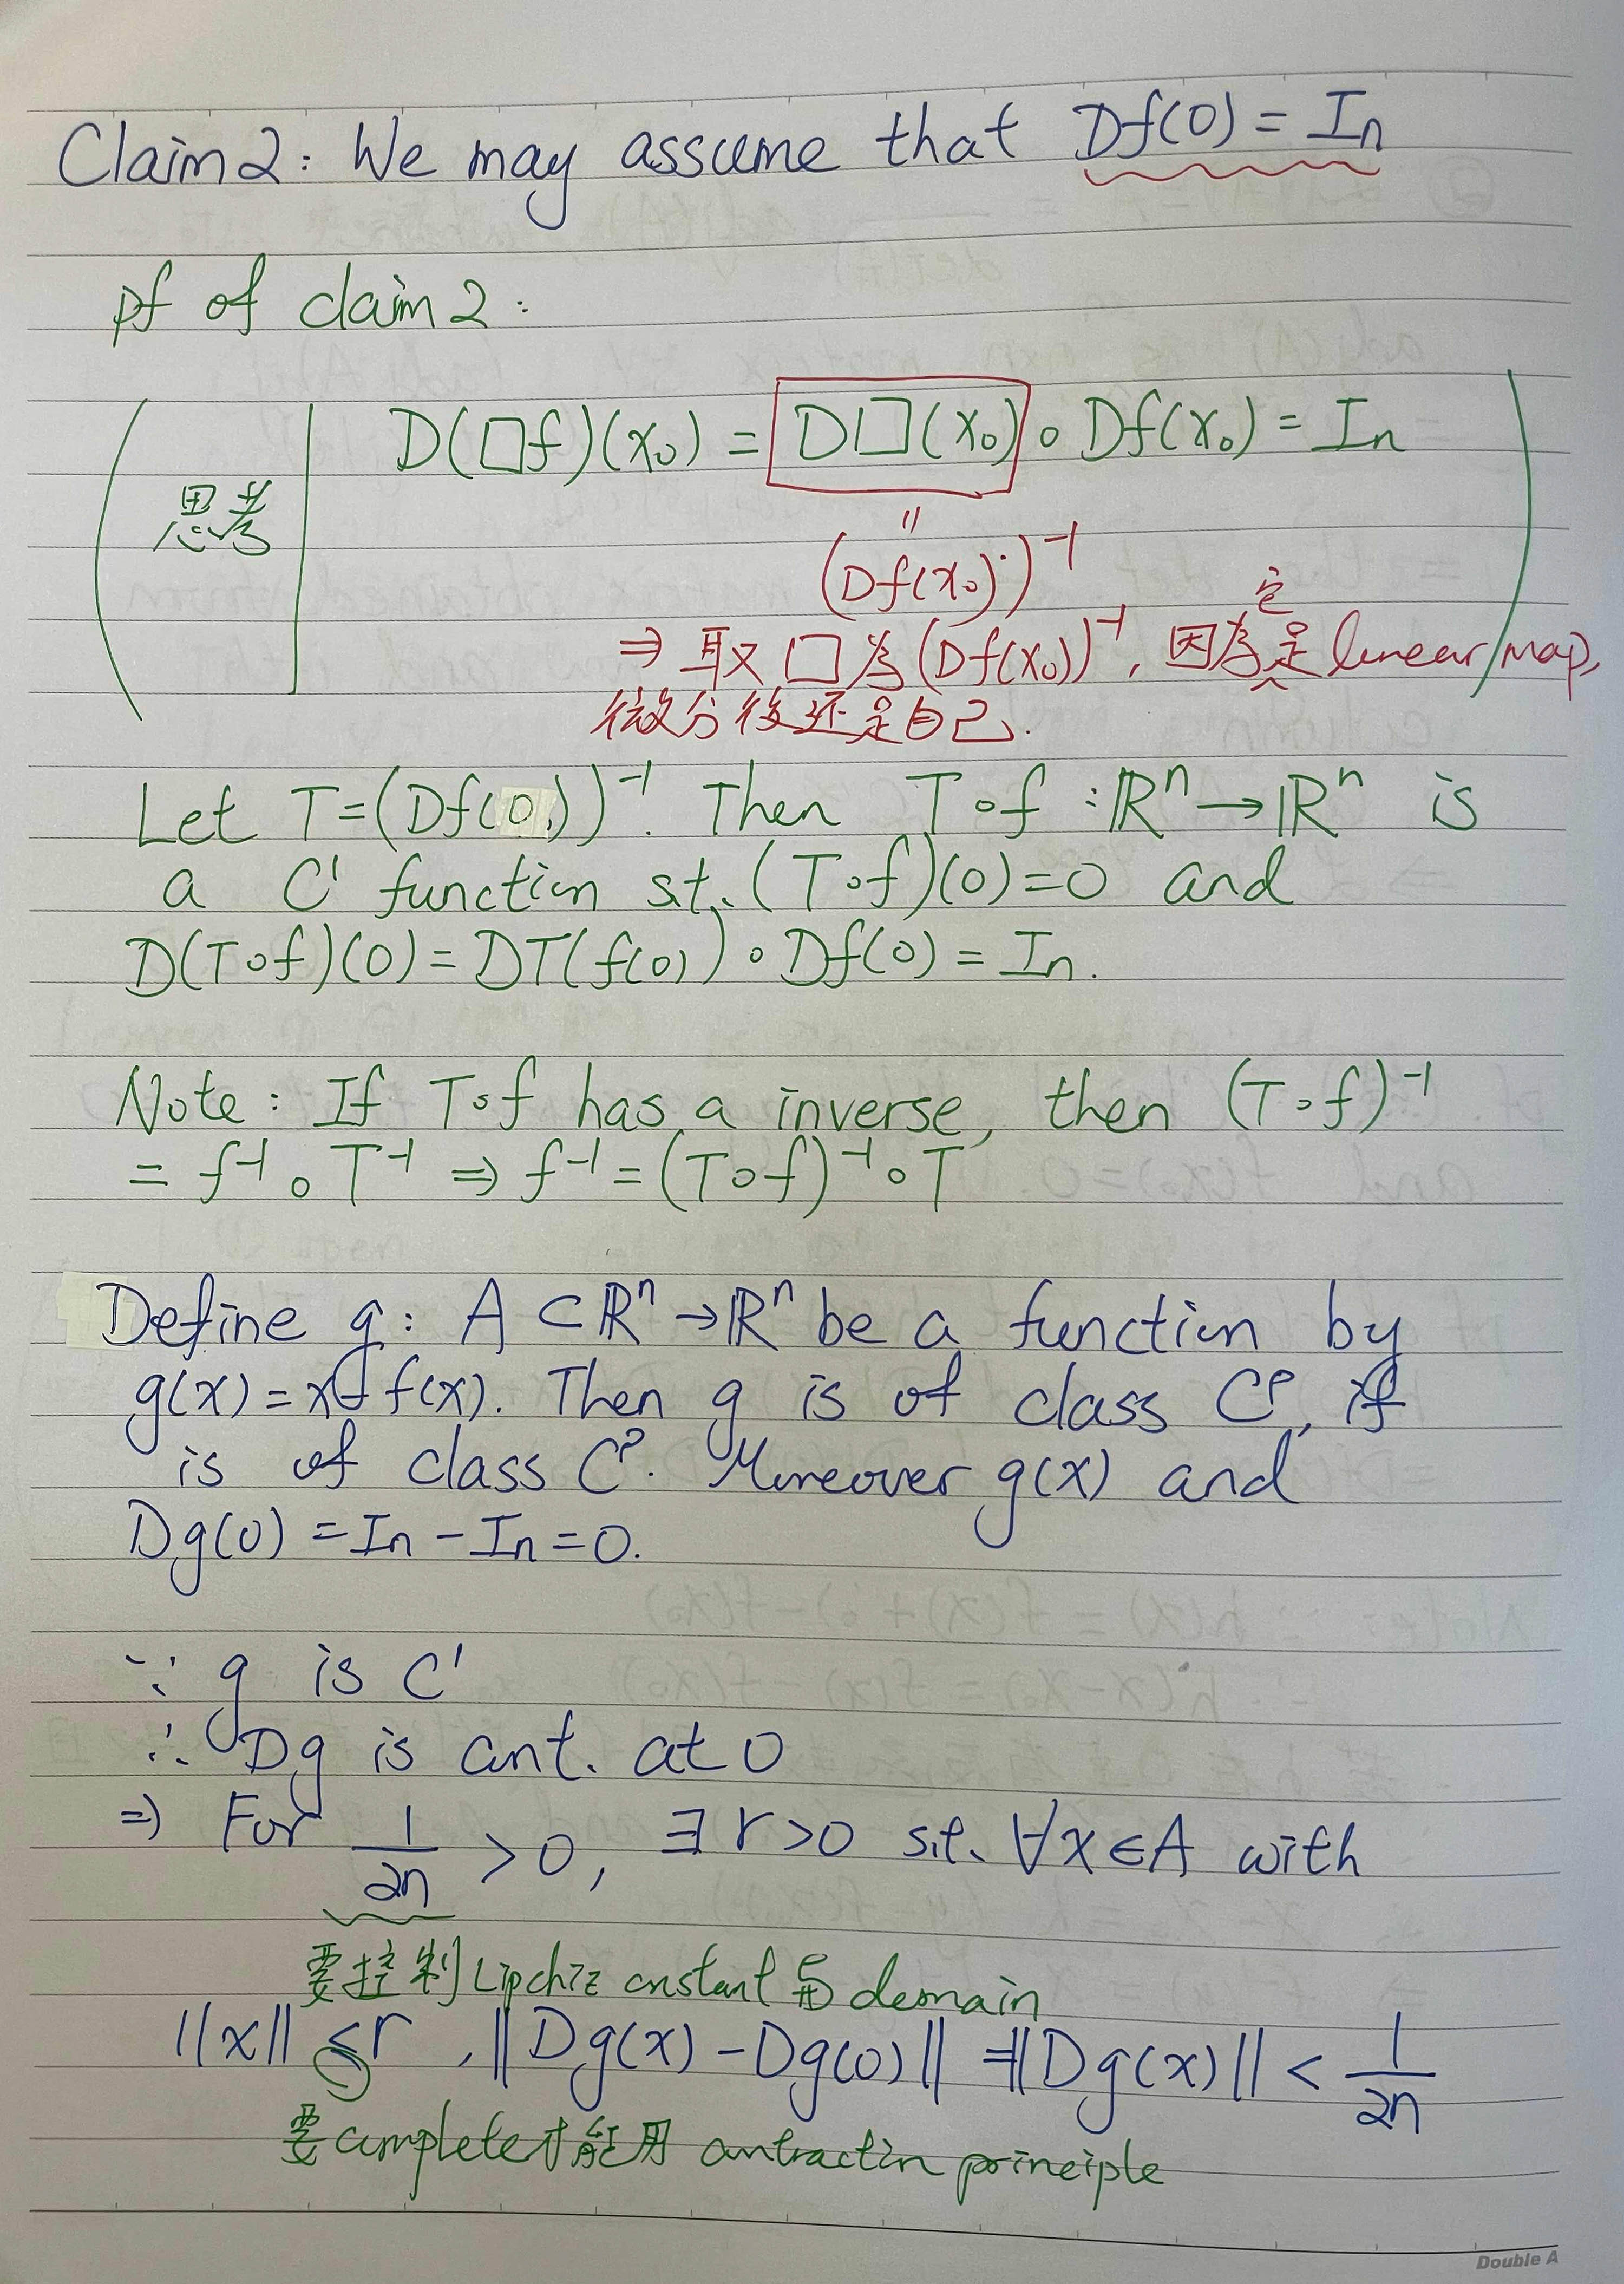 Claim 2: We may assume that Df(0) = In
pf of claim 2:
D(□f)(x₀) = D□(x₀) ∘ Df(x₀) = In
思考
=
(Df(x₀))⁻¹
⇒ 取 □ 為 (Df(x₀))⁻¹, 因為它是 linear map,
微分後还是自己.
Let T = (Df(0))⁻¹. Then T∘f : ℝⁿ → ℝⁿ is
a C¹ function s.t. (T∘f)(0) = 0 and
D(T∘f)(0) = DT(f(0)) ∘ Df(0) = In.
Note: If T∘f has a inverse, then (T∘f)⁻¹
= f⁻¹ ∘ T⁻¹ ⇒ f⁻¹ = (T∘f)⁻¹ ∘ T
Define g: A ⊂ ℝⁿ → ℝⁿ be a function by
g(x) = x - f(x). Then g is of class Cᵖ, if
is of class Cᵖ. Moreover g(x) and
Dg(0) = In - In = 0.
∵ g is C¹
∴ Dg is cont. at 0
⇒ For 1/2n > 0, ∃ r > 0 s.t. ∀x ∈ A with
要控制 Lipchiz constant 与 domain
||x|| ≤ r, ||Dg(x) - Dg(0)|| = ||Dg(x)|| < 1/2n
要 complete 才能用 contraction principle
Double A